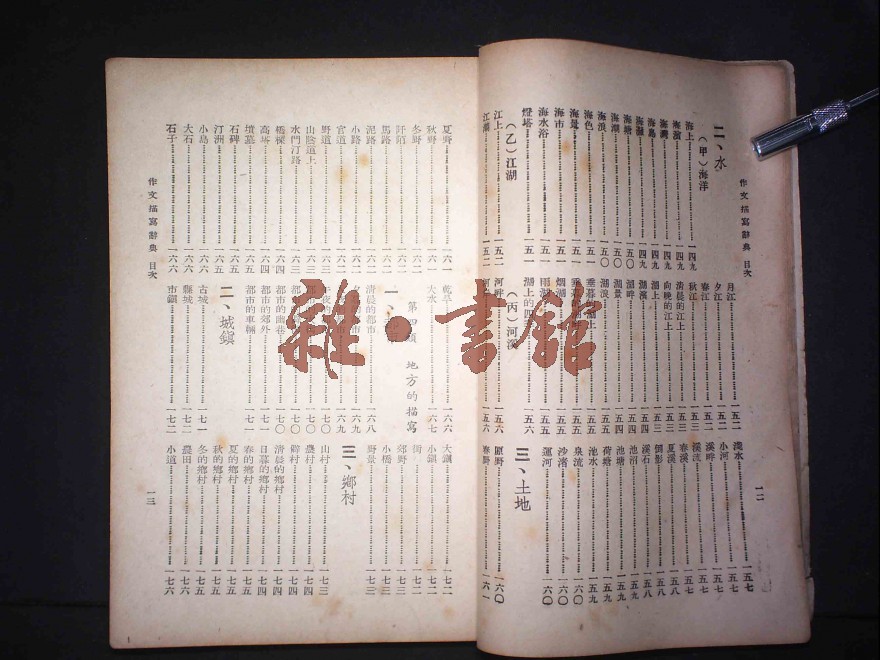 作文描寫辭典 目次
一二
二、水
（甲）海洋
海上……一四九
海濱……一四九
海灣……一四九
海島……一四九
海潮……一五〇
海浪……一五〇
海色……一五一
海景……一五一
海市……一五一
海水浴……一五一
燈塔……一五一
（乙）江湖
江上……一五二
月江……一五二
夕江……一五二
春江……一五二
秋江……一五三
清晨的江上……一五三
向晚的江上……一五三
湖上……一五四
湖濱……一五四
湖畔……一五四
湖景……一五四
湖浪……一五五
垂暮的湖上……一五五
烟湖……一五五
雨湖……一五五
湖上的四
（丙）河溪
溪水……一五七
小河……一五七
溪畔……一五七
溪流……一五七
春溪……一五八
夏溪……一五八
倒影……一五八
溪石……一五八
池沼……一五九
池塘……一五九
荷塘……一五九
池水……一五九
泉流……一六〇
沙灘……一六〇
運河……一六〇
三、土地
原野……一六〇
春野……一六一
夏野……一六一
秋野……一六一
冬野……一六二
阡陌……一六二
馬路……一六二
泥路……一六二
小路……一六二
官道……一六三
野道……一六三
山陰道上……一六三
水門汀路……一六三
橋樑……一六四
高塔……一六四
墳墓……一六五
石碑……一六五
汀洲……一六五
小島……一六六
大石……一六六
石子……一六六
乾旱……一六六
大水……一六七
第四類 地方的描寫
一、都
清晨的都市……一六八
都市的幽巷……一七〇
都市的郊外……一七〇
都市的車輛……一七一
二、城鎮
古城……一七一
縣城……一七二
市鎮……一七二
大鎮……一七二
小鎮……一七二
街……一七二
郊野……一七三
小橋……一七三
野景……一七三
三、鄉村
山村……一七三
農村……一七四
鄉村……一七四
清晨的鄉村……一七四
日暮的鄉村……一七四
春的鄉村……一七五
夏的鄉村……一七五
秋的鄉村……一七五
冬的鄉村……一七五
農田……一七六
小道……一七六
作文描寫辭典 目次
一三
雜·書館